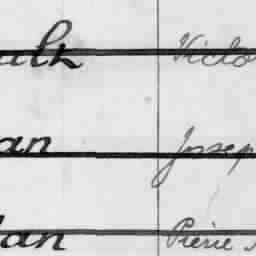 alk Victo
an Josep
lan Pierre